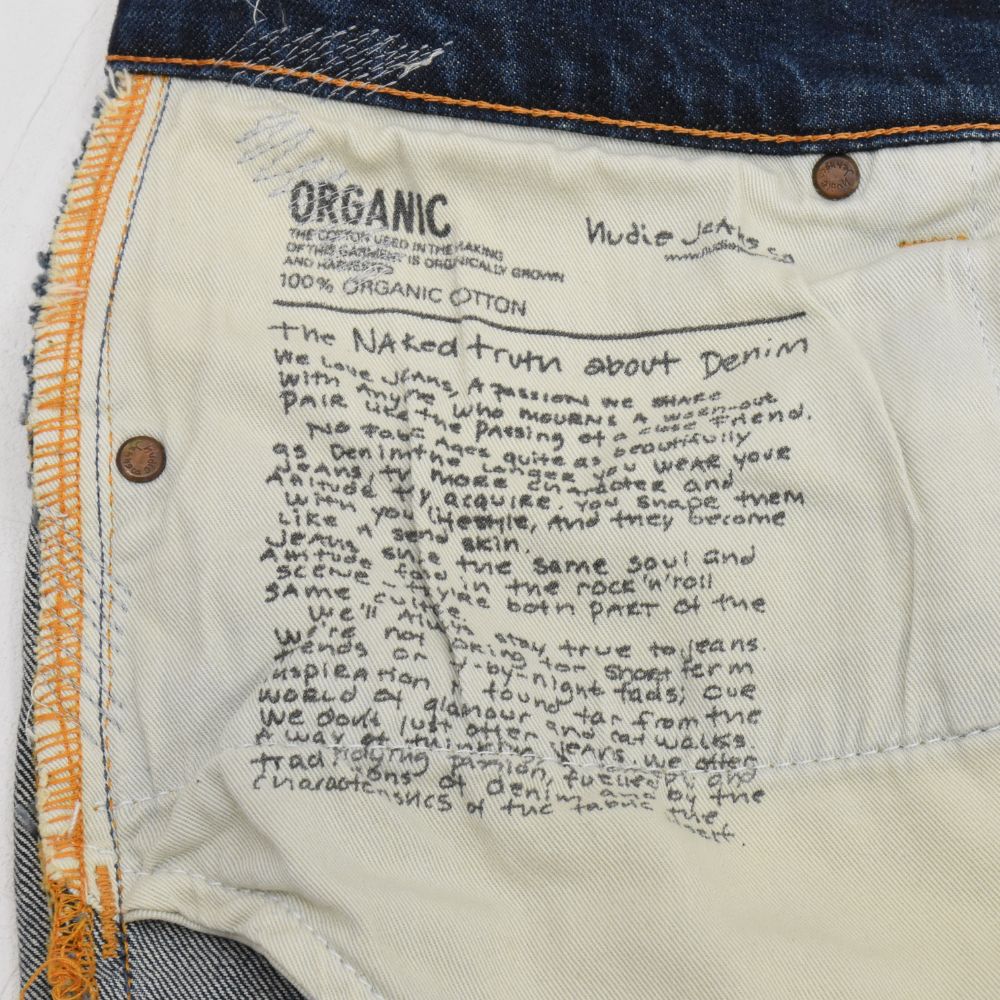 ORGANIC
THE COTTON USED IN THE MAKING
OF THIS GARMENT IS ORGANICALLY GROWN
AND HARVESTED
100% ORGANIC COTTON
Nudie Jeans co
www.nudie
the NAKed truth about Denim
We Love JEANS, A PASSION we SHARE
With Anyone Who MOURNS A worn-out
PAIR Like the PASSING of a close Friend.
No Fabric Ages quite as beautifully
as Denim the Longer you WEAR your
Jeans, the more character and
Attitude they acquire. You shape them
With your Lifestyle, And they become
Like A second skin.
Jeans share the same soul and
Attitude found in the rock'n'roll
scene they're both PART of the
SAME culture
We'll Always stay true to jeans.
We're not looking for short term
trends or fly-by-night fads; our
inspiration is found far from the
WORLD of glamour and cat walks.
We don't just offer jeans. We offer
A way of thinking
passion, fuelled by the
traditions of denim and by the
characteristics of the fabric